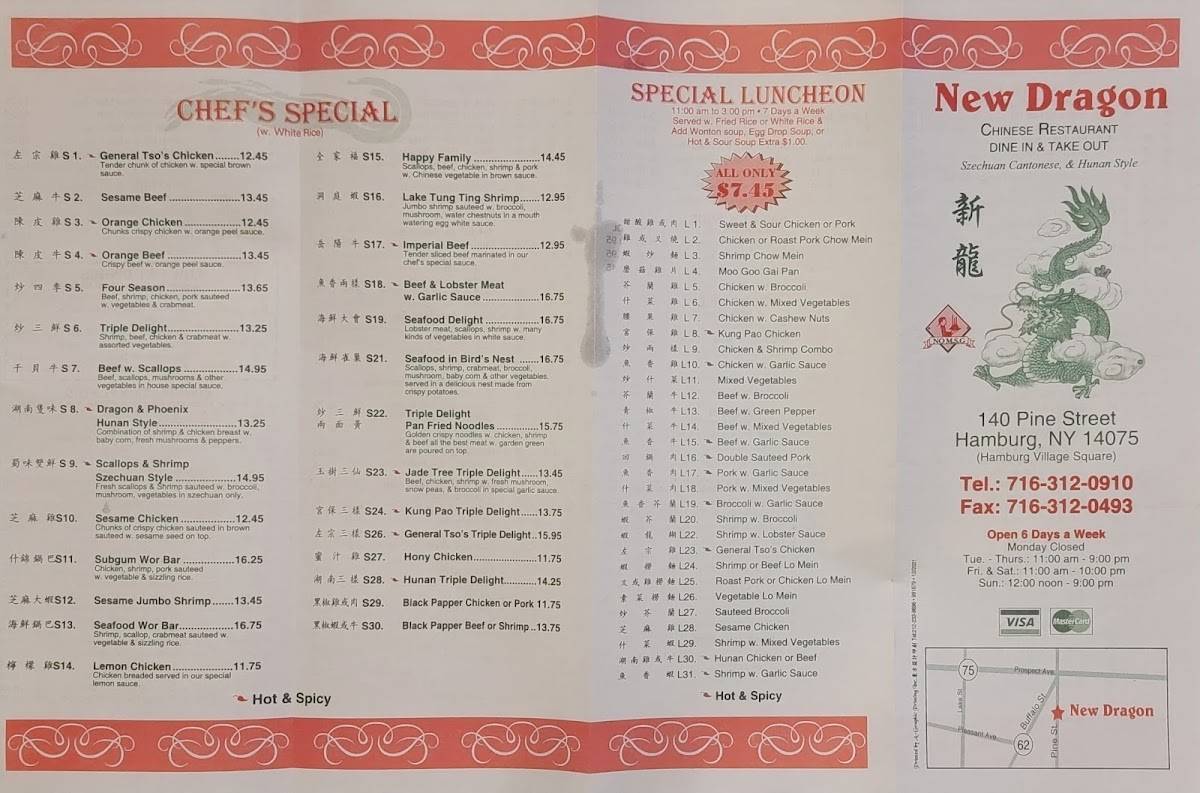 CHEF'S SPECIAL
(w. White Rice)
左宗雞 S 1. General Tso's Chicken........12.45
Tender chunk of chicken w. special brown
sauce.
芝麻牛 S 2. Sesame Beef ....................13.45
陳皮雞 S 3. Orange Chicken ................12.45
Chunks crispy chicken w. orange peel sauce.
陳皮牛 S 4. Orange Beef .....................13.45
Crispy beef w. orange peel sauce.
炒四季 S 5. Four Season .....................13.65
Beef, shrimp, chicken, pork sauteed
w. vegetables & crabmeat.
炒三鮮 S 6. Triple Delight.....................13.25
Shrimp, beef, chicken & crabmeat w.
assorted vegetables.
干貝牛 S 7. Beef w. Scallops ................14.95
Beef, scallops, mushrooms & other
vegetables in house special sauce.
湖南隻味 S 8. Dragon & Phoenix
Hunan Style.......................13.25
Combination of shrimp & chicken breast w.
baby corn, fresh mushrooms & peppers.
蜀味雙鮮 S 9. Scallops & Shrimp
Szechuan Style ..................14.95
Fresh scallops & Shrimp sauteed w. broccoli,
mushroom, vegetables in szechuan only.
芝麻雞 S10. Sesame Chicken ................12.45
Chunks of crispy chicken sauteed in brown
sauteed w. sesame seed on top.
什錦鍋巴 S11. Subgum Wor Bar ................16.25
Chicken, shrimp, pork sauteed
w. vegetable & sizzling rice.
芝麻大蝦 S12. Sesame Jumbo Shrimp.......13.45
海鮮鍋巴 S13. Seafood Wor Bar................16.75
Shrimp, scallop, crabmeat sauteed w.
vegetable & sizzling rice.
檸檬雞 S14. Lemon Chicken ..................11.75
Chicken breaded served in our special
lemon sauce.
全家福 S15. Happy Family ....................14.45
Scallops, beef, chicken, shrimp & pork
w. Chinese vegetable in brown sauce.
洞庭蝦 S16. Lake Tung Ting Shrimp.......12.95
Jumbo shrimp sauteed w. broccoli,
mushroom, water chestnuts in a mouth
watering egg white sauce.
岳陽牛 S17. Imperial Beef ....................12.95
Tender sliced beef marinated in our
chef's special sauce.
魚香兩樣 S18. Beef & Lobster Meat
w. Garlic Sauce ..................16.75
海鮮大會 S19. Seafood Delight .................16.75
Lobster meat, scallops, shrimp w. many
kinds of vegetables in white sauce.
海鮮雀巢 S21. Seafood in Bird's Nest ......16.75
Scallops, shrimp, crabmeat, broccoli,
mushroom, baby corn & other vegetables.
served in a delicious nest made from
crispy potatoes.
炒三鮮 S22. Triple Delight
兩面黃 Pan Fried Noodles .............15.75
Golden crispy noodles w. chicken, shrimp
& beef all the best meat w. garden green
are poured on top.
玉樹三仙 S23. Jade Tree Triple Delight.....13.45
Beef, chicken, shrimp w. fresh mushroom,
snow peas, & broccoli in special garlic sauce.
宮保三樣 S24. Kung Pao Triple Delight.....13.75
左宗三樣 S26. General Tso's Triple Delight..15.95
蜜汁雞 S27. Hony Chicken.....................11.75
湖南三樣 S28. Hunan Triple Delight..........14.25
黑椒雞或肉 S29. Black Papper Chicken or Pork 11.75
黑椒蝦或牛 S30. Black Papper Beef or Shrimp..13.75
Hot & Spicy
SPECIAL LUNCHEON
11:00 am to 3:00 pm • 7 Days a Week
Served w. Fried Rice or White Rice &
Add Wonton soup, Egg Drop Soup, or
Hot & Sour Soup Extra $1.00.
ALL ONLY
$7.45
甜酸雞或肉 L 1. Sweet & Sour Chicken or Pork
雞或叉燒 L 2. Chicken or Roast Pork Chow Mein
蝦炒麵 L 3. Shrimp Chow Mein
蘑菇雞片 L 4. Moo Goo Gai Pan
芥蘭雞 L 5. Chicken w. Broccoli
什菜雞 L 6. Chicken w. Mixed Vegetables
腰果雞 L 7. Chicken w. Cashew Nuts
宮保雞 L 8. Kung Pao Chicken
炒兩樣 L 9. Chicken & Shrimp Combo
魚香雞 L10. Chicken w. Garlic Sauce
炒什菜 L11. Mixed Vegetables
芥蘭牛 L12. Beef w. Broccoli
青椒牛 L13. Beef w. Green Pepper
什菜牛 L14. Beef w. Mixed Vegetables
魚香牛 L15. Beef w. Garlic Sauce
回鍋肉 L16. Double Sauteed Pork
魚香肉 L17. Pork w. Garlic Sauce
什菜肉 L18. Pork w. Mixed Vegetables
魚香芥蘭 L19. Broccoli w. Garlic Sauce
蝦芥蘭 L20. Shrimp w. Broccoli
蝦龍糊 L22. Shrimp w. Lobster Sauce
左宗雞 L23. General Tso's Chicken
蝦撈麵 L24. Shrimp or Beef Lo Mein
叉或雞撈麵 L25. Roast Pork or Chicken Lo Mein
素菜撈麵 L26. Vegetable Lo Mein
炒芥蘭 L27. Sauteed Broccoli
芝麻雞 L28. Sesame Chicken
什菜蝦 L29. Shrimp w. Mixed Vegetables
湖南雞或牛 L30. Hunan Chicken or Beef
魚香蝦 L31. Shrimp w. Garlic Sauce
Hot & Spicy
New Dragon
CHINESE RESTAURANT
DINE IN & TAKE OUT
Szechuan Cantonese, & Hunan Style
新龍
NO M.S.G
140 Pine Street
Hamburg, NY 14075
(Hamburg Village Square)
Tel.: 716-312-0910
Fax: 716-312-0493
Open 6 Days a Week
Monday Closed
Tue. - Thurs.: 11:00 am - 9:00 pm
Fri. & Sat.: 11:00 am - 10:00 pm
Sun.: 12:00 noon - 9:00 pm
VISA
MasterCard
75
Prospect Ave.
Lake St
Buffalo St
New Dragon
Pleasant Ave.
62
Pine St